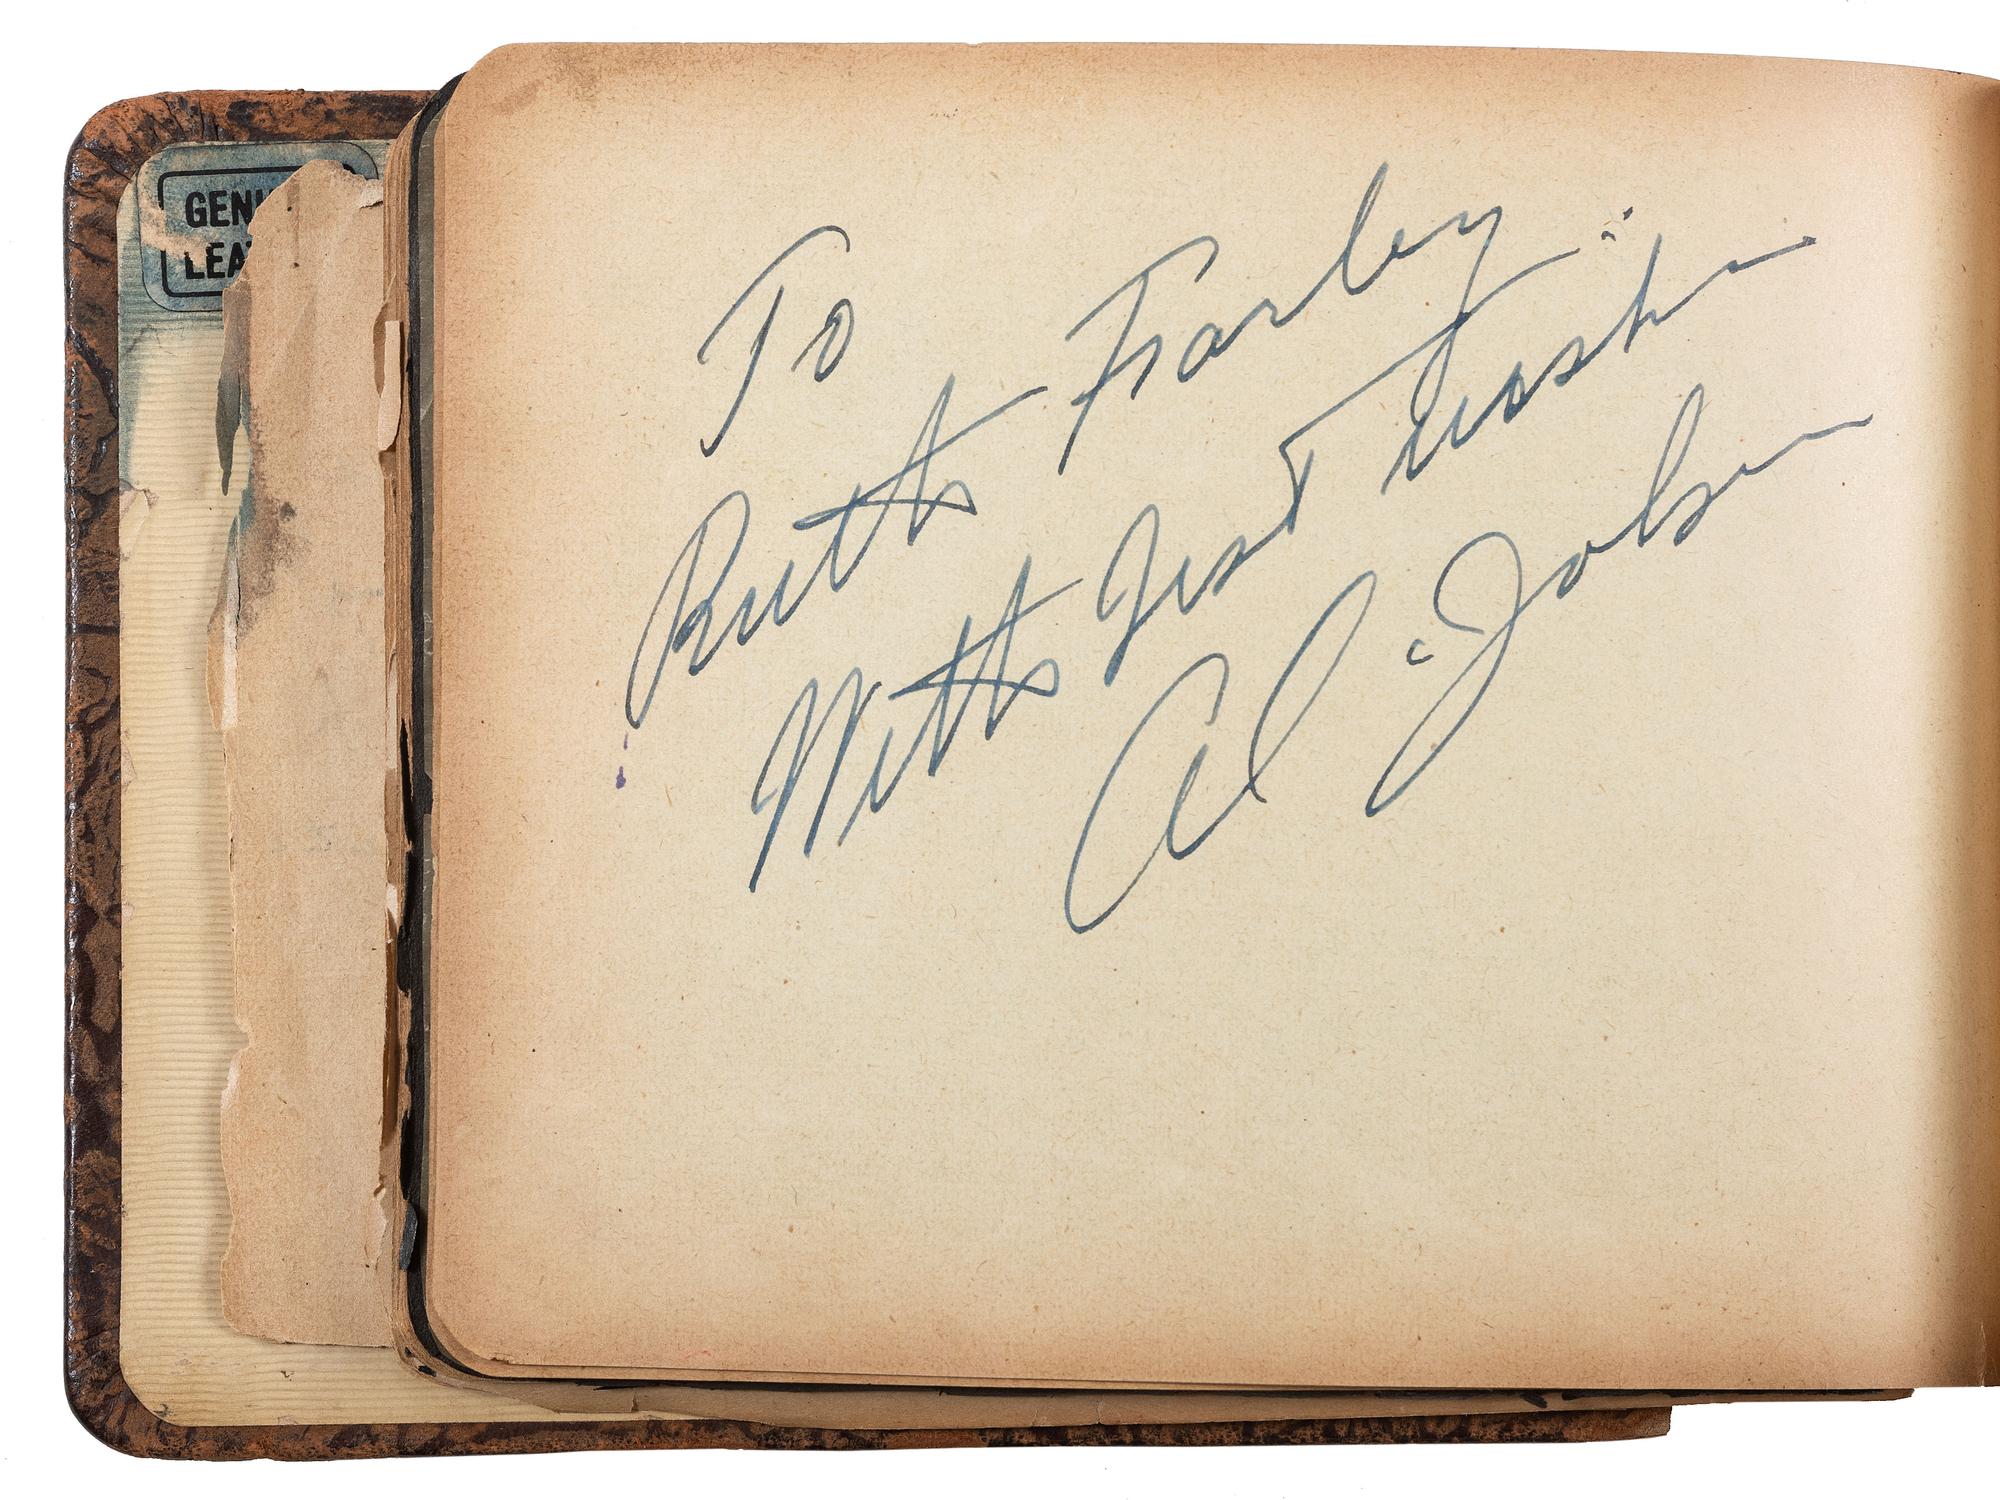 GENU
LEA
To
Ruth Farley:
With Just Wish
Al Jolson